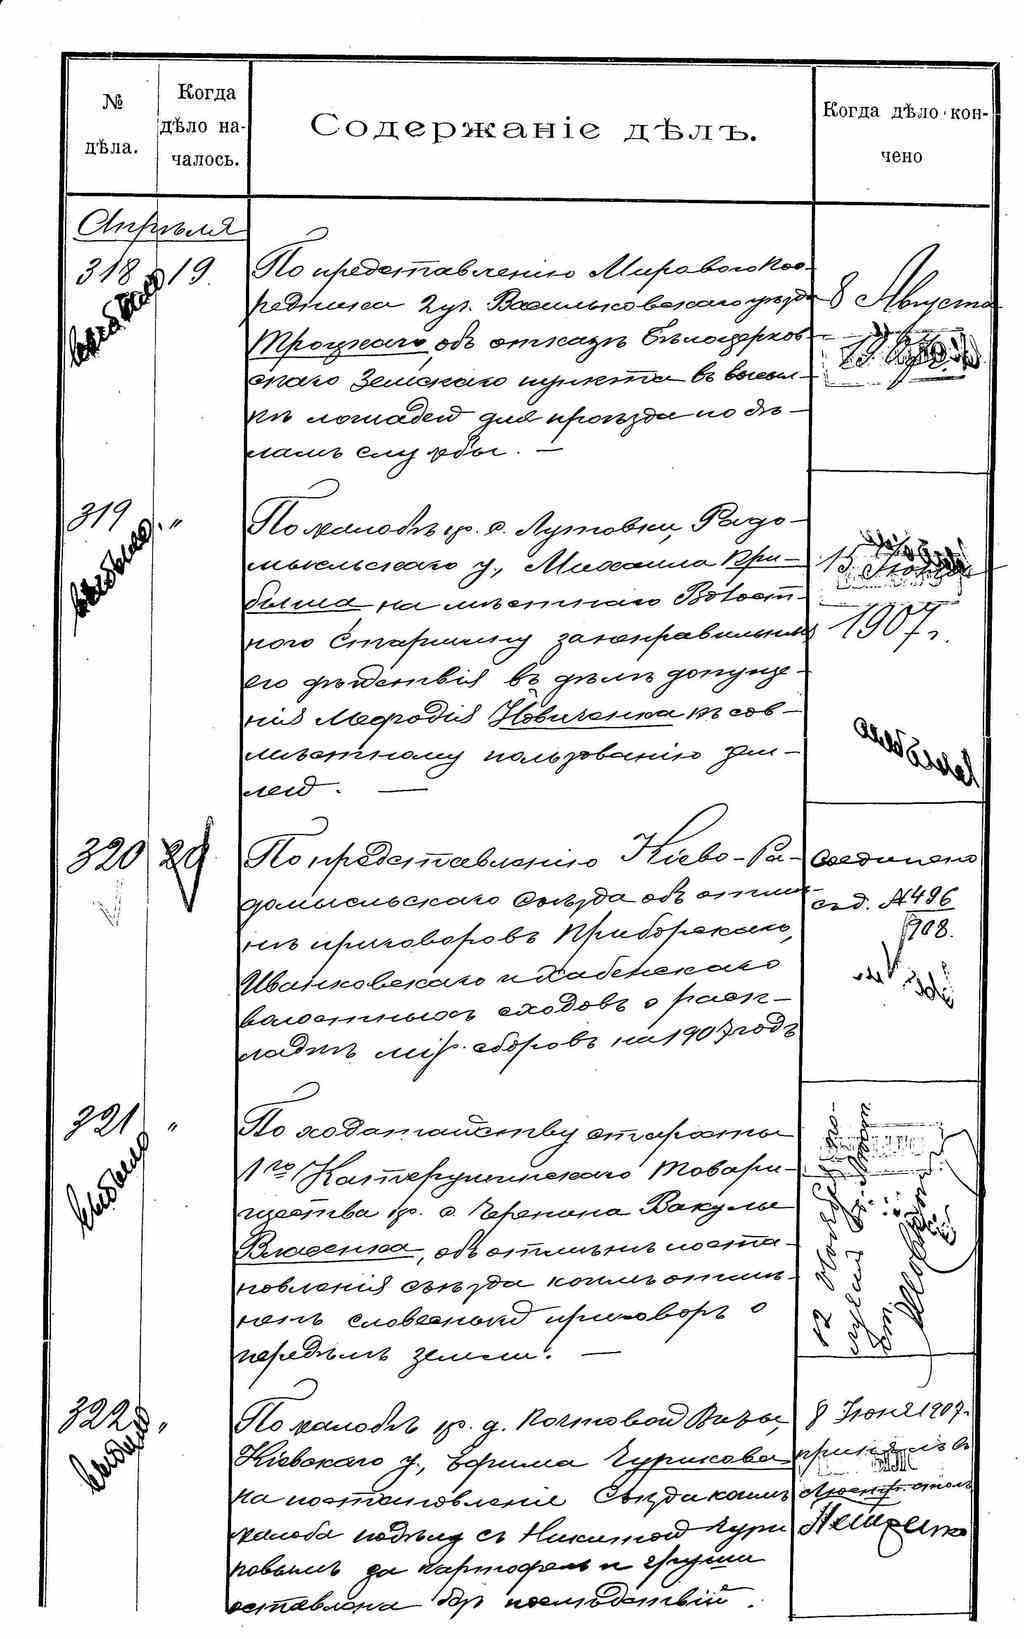 № дѣла.
Когда дѣло на-
чалось.
Содержаніе дѣлъ.
Когда дѣло кон-
чено
Апрѣля
318 19.
выбыло
По представленію Мирового Пос-
редника 2 уч. Васильковскаго уѣзда
Троцкаго, объ отказѣ Бѣлоцерков-
скаго Земскаго пункта въ высыл-
кѣ лошадей для проѣзда по дѣ-
ламъ службы. —
8 Августа
1907 г.
319 "
выбыло
По жалобѣ кр. с. Лутовки, Радо-
мысльскаго у, Михаила При-
на мѣстнаго Волост-
ного Старшину за неправильныя
его дѣйствія въ дѣлѣ допуще-
нія Мефодія Новиченка къ сов-
мѣстному пользованію зем-
лей. —
15 Іюня
1907 г.
выбыло
320 20
По представленію Кіево-Ра-
домысльскаго Съѣзда объ отмѣ-
нѣ приговоровъ Приборскаго,
Иванковскаго и Хабенскаго
волостныхъ сходовъ о раск-
ладкѣ мір. сборовъ на 1907 годъ
Соединено
съ д. №496
908.
321 "
выбыло
По ходатайству старосты
1го Катерининскаго Товари-
щества кр. с. Черепина Вакулы
Власенка, объ отмѣнѣ поста-
новленія съѣзда коимъ отмѣ-
ненъ словесный приговоръ о
передѣлѣ земли. —
12 Ноября
322 "
выбыло
По жалобѣ кр. д. Почтовой Виты,
Кіевскаго у, Ефима Чурикова
на постановленіе Съѣзда коимъ
жалоба по дѣлу съ Никитой Чури
ковымъ за картофель и груши
оставлена безъ послѣдствій.
8 Іюня 1907 г.
принялъ въ
столъ